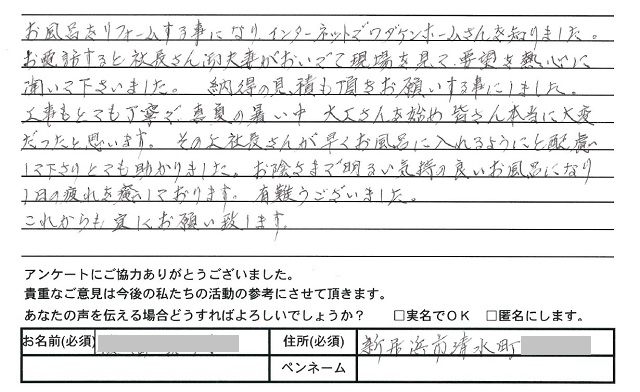 お風呂をリフォームする事になり、インターネットでワダケンホームさんを知りました。
お電話すると社長さん御夫妻がおいでて現場を見て、要望を熱心に
聞いて下さいました。 納得の見積も頂きお願いする事にしました。
工事もとても丁寧で、真夏の暑い中 大工さんを始め皆さん本当に大変
だったと思います。 その上社長さんが早くお風呂に入れるようにと配慮
して下さりとても助かりました。お陰さまで明るい気持の良いお風呂になり
1日の疲れを癒しております。有難うございました。
これからも宜しくお願い致します。
アンケートにご協力ありがとうございました。
貴重なご意見は今後の私たちの活動の参考にさせて頂きます。
あなたの声を伝える場合どうすればよろしいでしょうか? □実名でOK □匿名にします。
お名前(必須) 住所(必須) 新居浜市清水町
ペンネーム